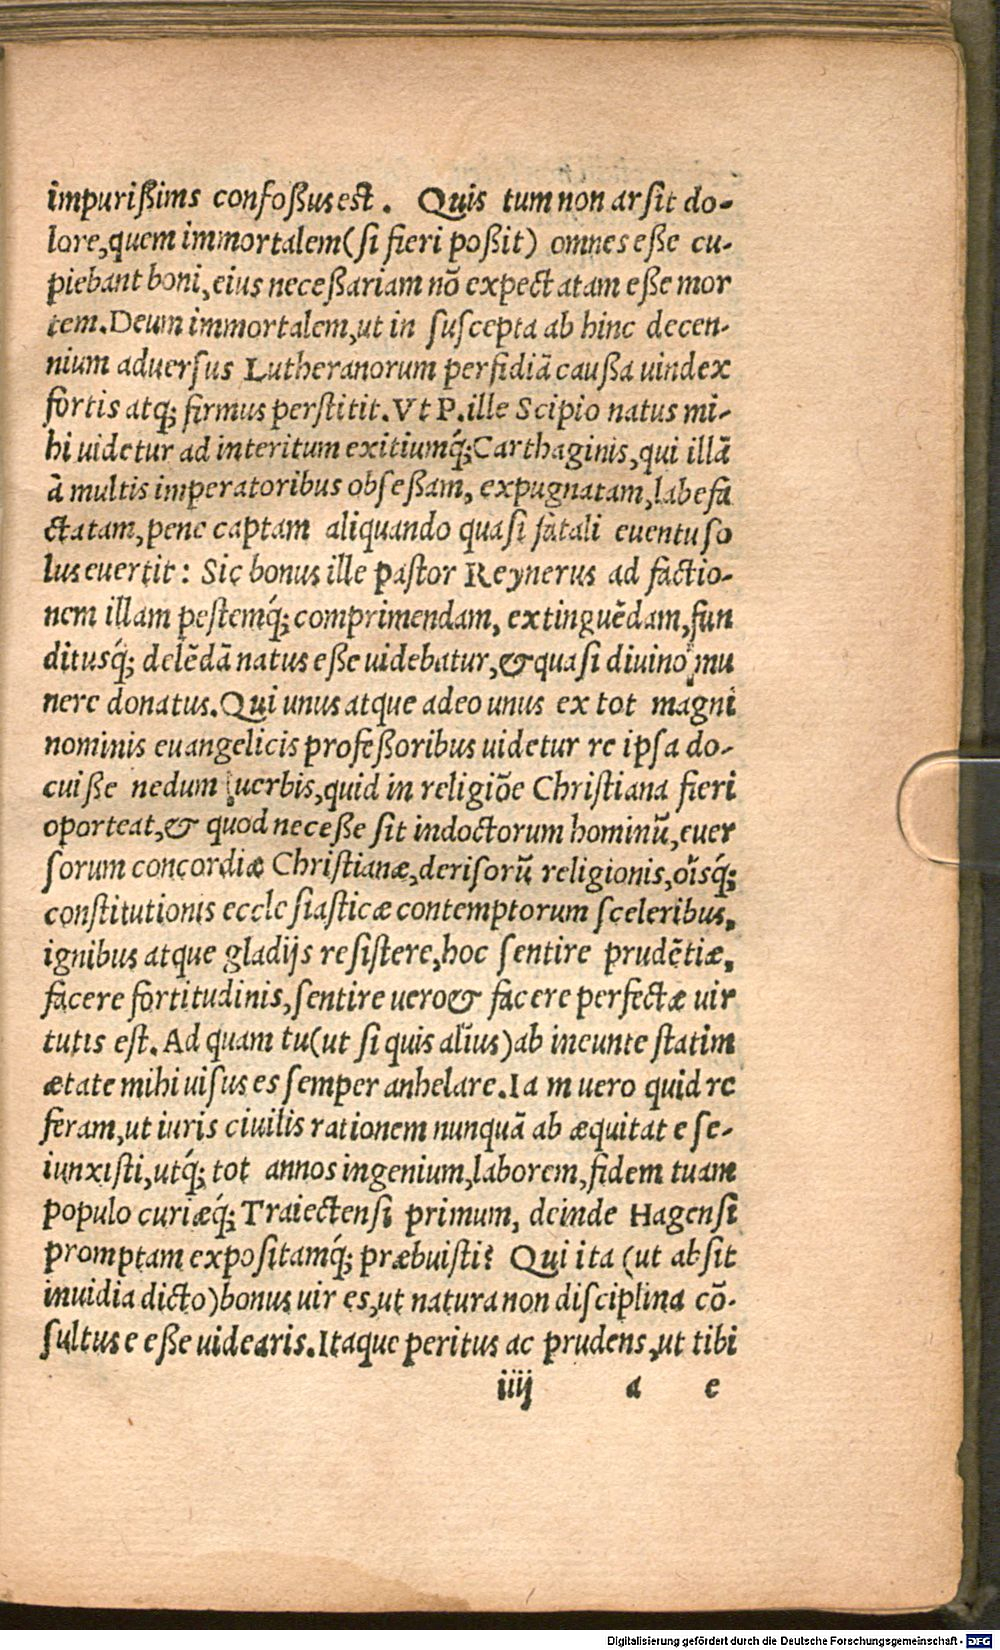 impurißims confoßus est. Quis tum non arsit do-
lore, quem immortalem (si fieri poßit) omnes eße cu-
piebant boni, eius neceßariam nō expectatam eße mor
tem. Deum immortalem, ut in suscepta ab hinc decen-
nium aduersus Lutheranorum perfidiā caußa uindex
fortis atq; firmus perstitit. Vt P. ille Scipio natus mi-
hi uidetur ad interitum exitiumq́; Carthaginis, qui illā
ā multis imperatoribus obseßam, expugnatam, labefa
ctatam, pene captam aliquando quasi fatali euentu so
lus euertit: Sic bonus ille Pastor Reynerus ad factio-
nem illam pestemq́; comprimendam, extinguēdam, fun
ditusq́; delēdā natus eße uidebatur, & quasi diuino mu
nere donatus. Qui unus atque adeo unus ex tot magni
nominis euangelicis profeßoribus uidetur re ipsa do-
cuiße nedum uerbis, quid in religiōe Christiana fieri
oporteat, & quod neceße sit indoctorum hominū, euer
sorum concordiæ Christianæ, derisorū religionis, oīsq́;
constitutionis ecclesiasticæ contemptorum sceleribus,
ignibus atque gladijs resistere, hoc sentire prudētiæ,
facere fortitudinis, sentire uero & facere perfectæ uir
tutis est. Ad quam tu (ut si quis alius) ab ineunte statim
ætate mihi uisus es semper anhelare. Iam uero quid re
feram, ut iuris ciuilis rationem nunquā ab æquitate se-
iunxisti, utq́; tot annos ingenium, laborem, fidem tuam
populo curiæq́; Traiectensi primum, deinde Hagensi
promptam expositamq́; præbuisti? Qui ita (ut absit
inuidia dicto) bonus uir es, ut natura non disciplina cō-
sultus e eße uidearis. Itaque peritus ac prudens, ut tibi
iiij a e
Digitalisierung gefördert durch die Deutsche Forschungsgemeinschaft - DFG